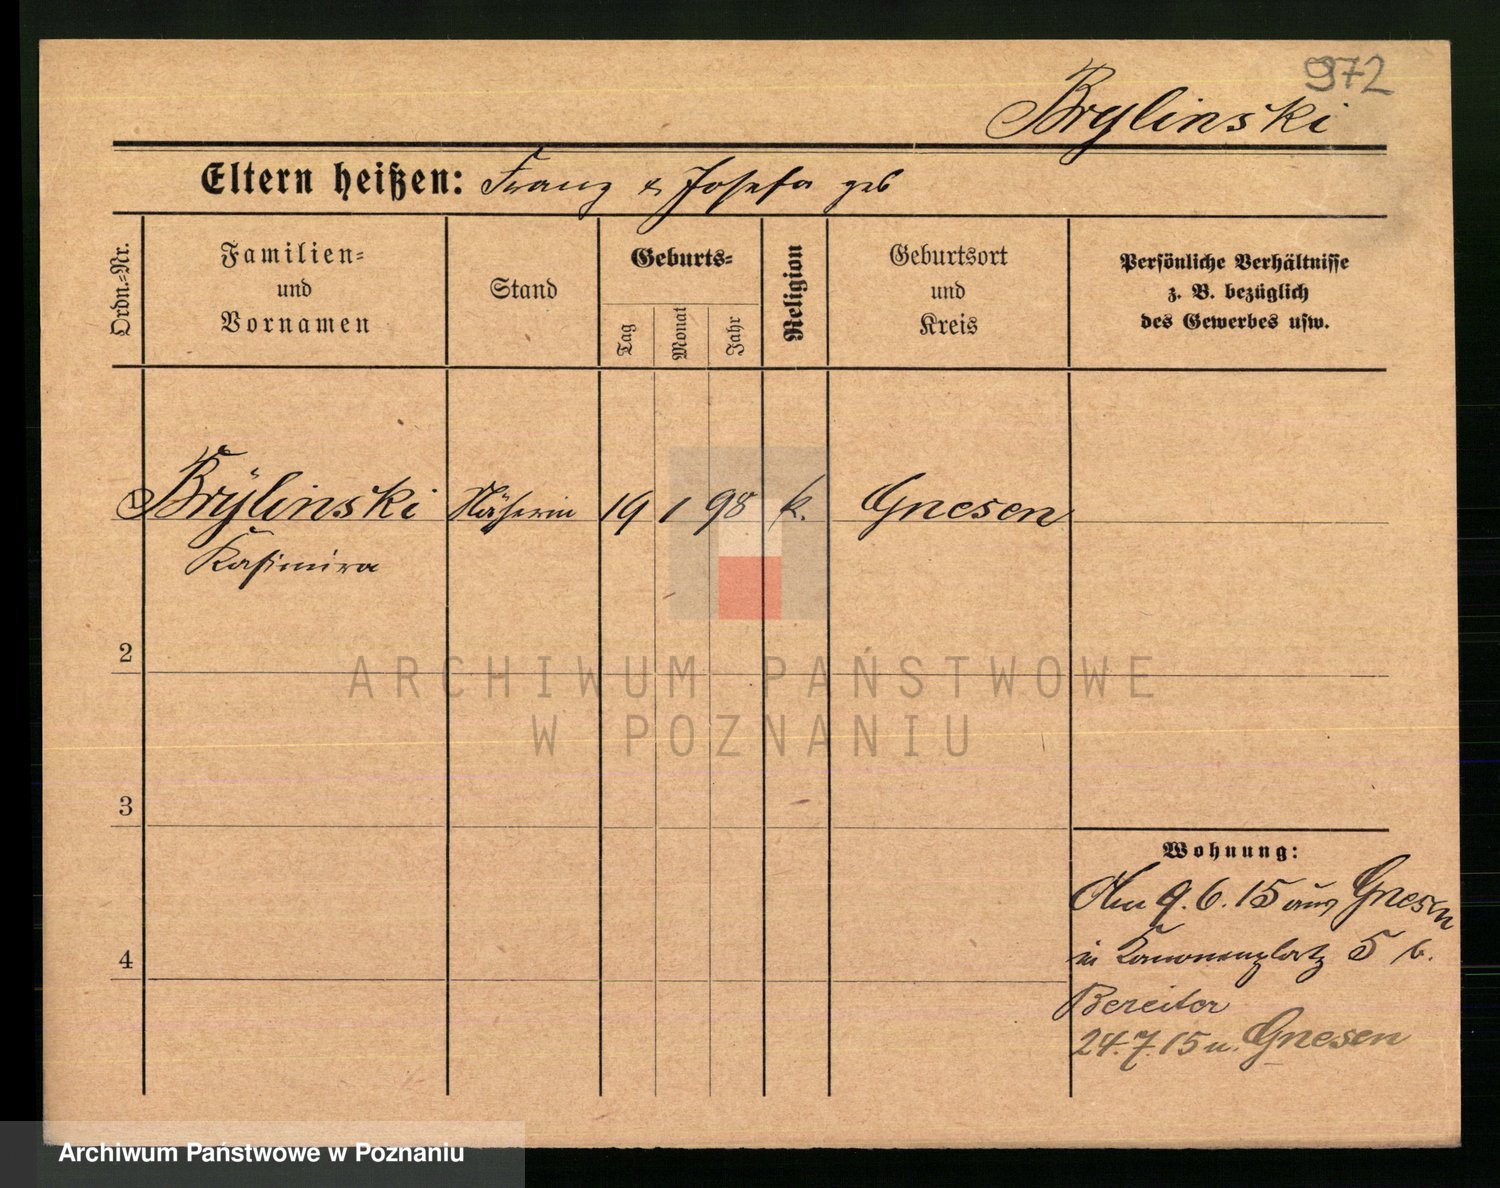 972
Brylinski
Eltern heißen: Franz & Josefa geb
Ordn.-Nr.
Familien-
und
Vornamen
Stand
Geburts-
Tag
Monat
Jahr
Religion
Geburtsort
und
Kreis
Persönliche Verhältnisse
z. B. bezüglich
des Gewerbes usw.
1 Brÿlinski Näherin 19 1 98 k. Gnesen
Kasimira
2
3
4
Wohnung:
Am 9.6.15 aus Gnesen
in Kanonenplatz 5 b.
Bereiter
24.7.15 n. Gnesen
ARCHIWUM PAŃSTWOWE
W POZNANIU
Archiwum Państwowe w Poznaniu